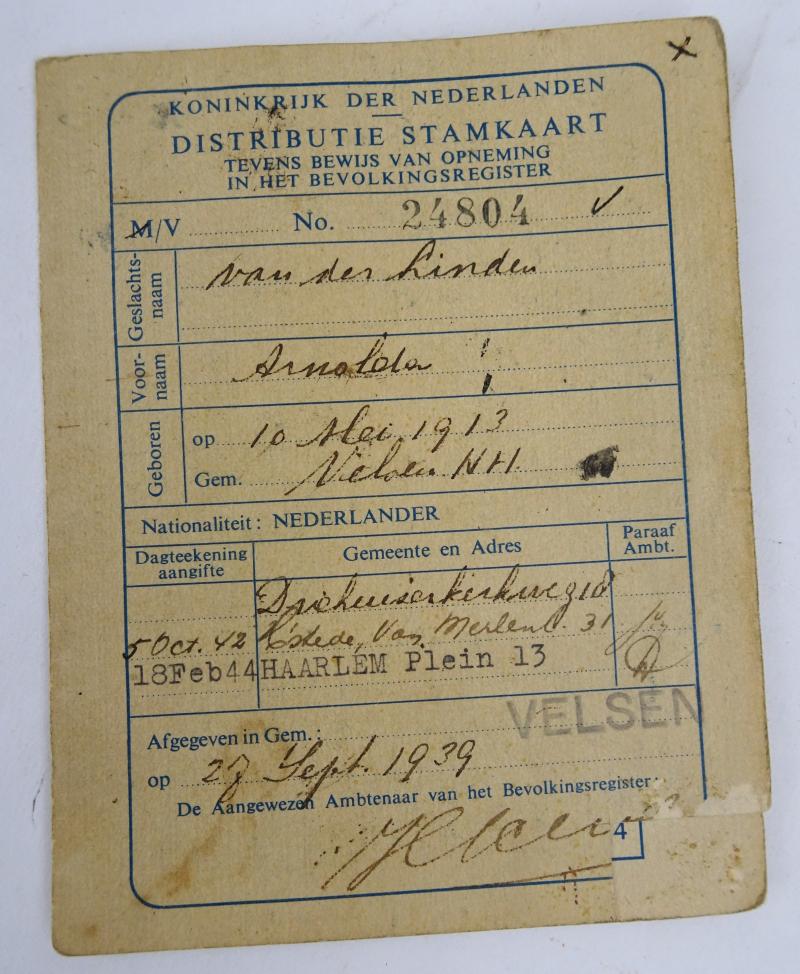 KONINKRIJK DER NEDERLANDEN
DISTRIBUTIE STAMKAART
TEVENS BEWIJS VAN OPNEMING
IN HET BEVOLKINGSREGISTER
M/V No. 24804
Geslachts-
naam
van der Linden
Voor-
naam
Arnolda
Geboren
op 10 Mei 1913
Gem. Velsen NH.
Nationaliteit: NEDERLANDER
Dagteekening
aangifte
Gemeente en Adres
Paraaf
Ambt.
Driehuizerkerkweg 18
5 Oct. 42 H'stede, Van Merlenl. 31
18Feb44 HAARLEM Plein 13
VELSEN
Afgegeven in Gem.:
op 27 Sept. 1939
De Aangewezen Ambtenaar van het Bevolkingsregister:
4